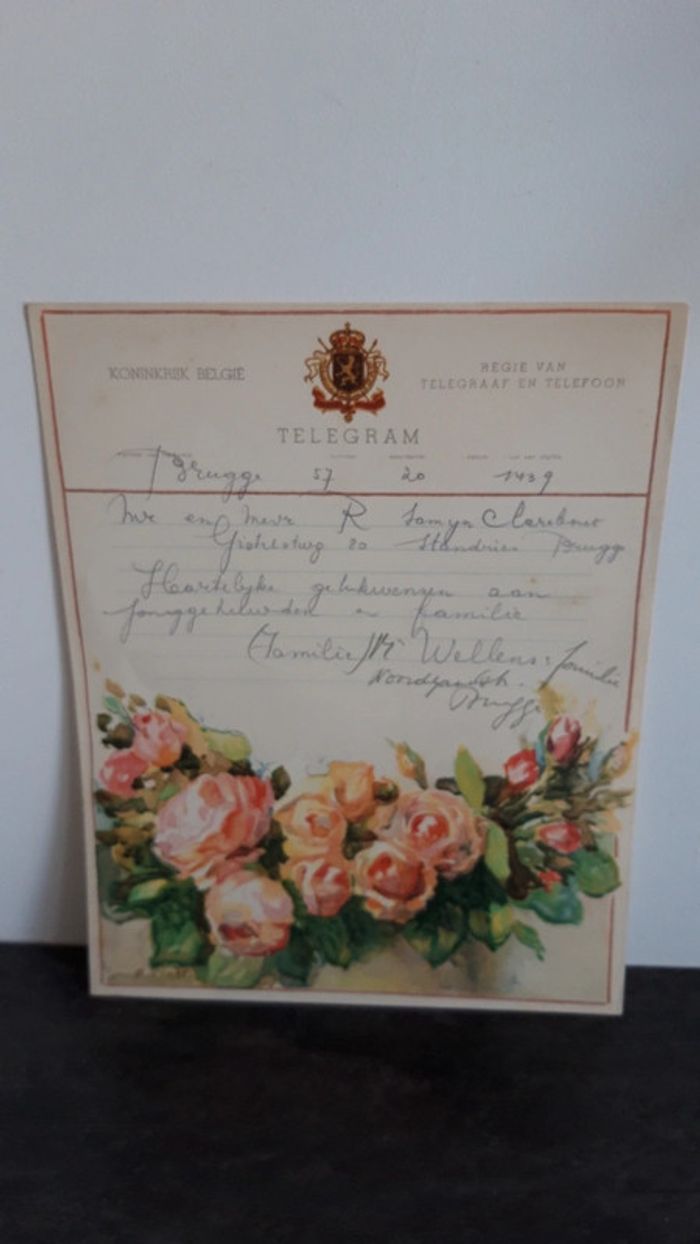 KONINKRIJK BELGIË
REGIE VAN
TELEGRAAF EN TELEFOON
TELEGRAM
Brugge 57 20 1439
Mr en Mevr R Samyn Clarebout
20 Standries Brugge
Hartelijke gelukwensen aan
jonggehuwden en familie
(familie) Mr Wellens: familie
Brugge